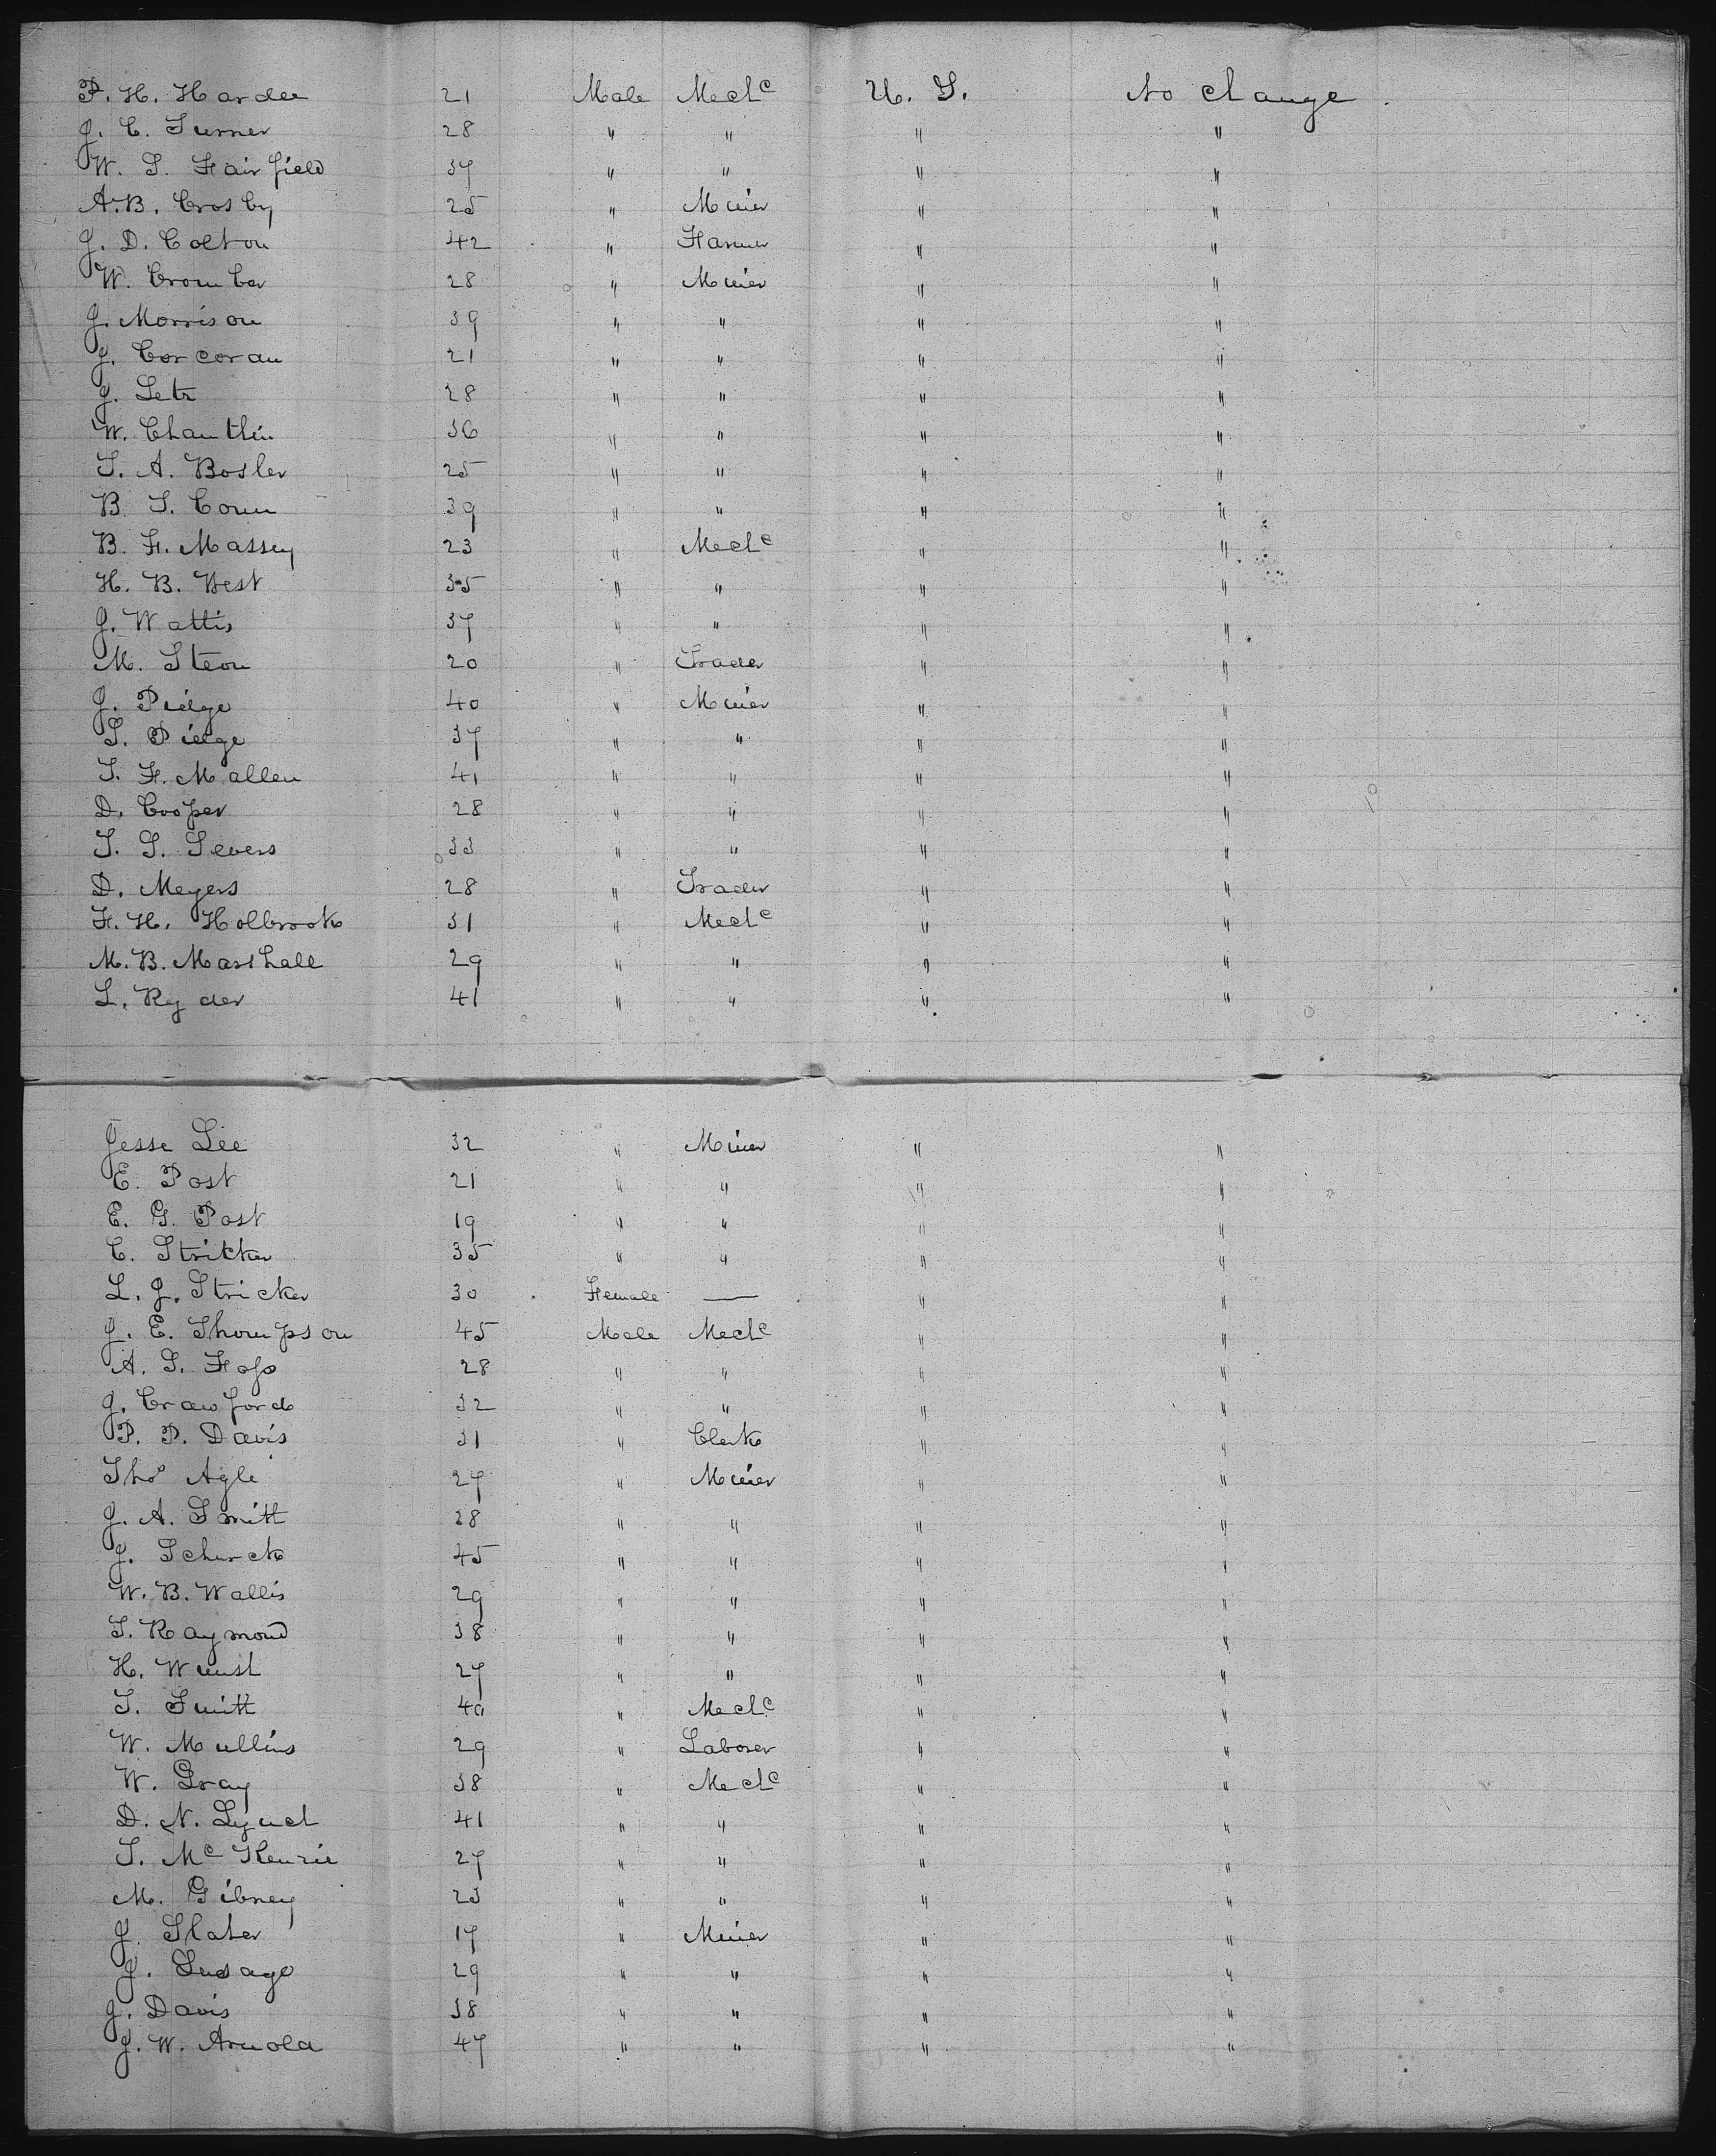 P. H. Hardee 21 Male Mech^c U. S. No change.
J. C. Turner 28 " " " "
W. S. Fairfield 37 " " " "
A. B. Crosby 25 " Miner " "
J. D. Colton 42 " Farmer " "
W. Cromber 28 " Miner " "
J. Morrison 39 " " " "
J. Corcoran 21 " " " "
J. Setz 28 " " " "
W. Chanthin 36 " " " "
T. A. Bosler 25 " " " "
B. S. Conn 39 " " " "
B. F. Massey 23 " Mech^c " "
H. B. West 35 " " " "
J. Wattis 37 " " " "
M. Steon 20 " Trader " "
J. Pidge 40 " Miner " "
S. Pidge 37 " " " "
T. F. Mallen 41 " " " "
D. Cooper 28 " " " "
T. S. Severs 33 " " " "
D. Meyers 28 " Trader " "
F. H. Holbrook 31 " Mech^c " "
M. B. Marshall 29 " " " "
L. Ryder 41 " " " "
Jesse Lee 32 " Miner " "
E. Post 21 " " " "
E. G. Post 19 " " " "
C. Stricker 35 " " " "
L. J. Stricker 30 Female — " "
J. E. Thompson 45 Male Mech^c " "
A. S. Foss 28 " " " "
J. Crawford 32 " " " "
P. P. Davis 31 " Clerk " "
Tho^s Agle 27 " Miner " "
J. A. Smith 28 " " " "
J. Schurck 45 " " " "
W. B. Wallis 29 " " " "
T. Raymond 38 " " " "
H. Wunsh 27 " " " "
T. Smith 40 " Mech^c " "
W. Mullins 29 " Laborer " "
W. Gray 38 " Mech^c " "
D. N. Lynch 41 " " " "
T. M^c Kenzie 27 " " " "
M. Gibney 23 " " " "
J. Slater 17 " Miner " "
J. 29 " " " "
J. Davis 38 " " " "
J. W. Arnold 47 " " " "